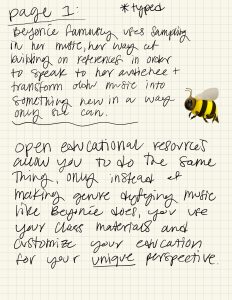 page 1:
*typed
Beyoncé famously uses sampling
in her music, her way of
building on references in order
to speak to her audience +
transform old music into
something new in a way
only she can.
open educational resources
allow you to do the same
thing, only instead of
making genre defying music
like Beyoncé does, you use
your class materials and
customize your education
for your unique perspective.